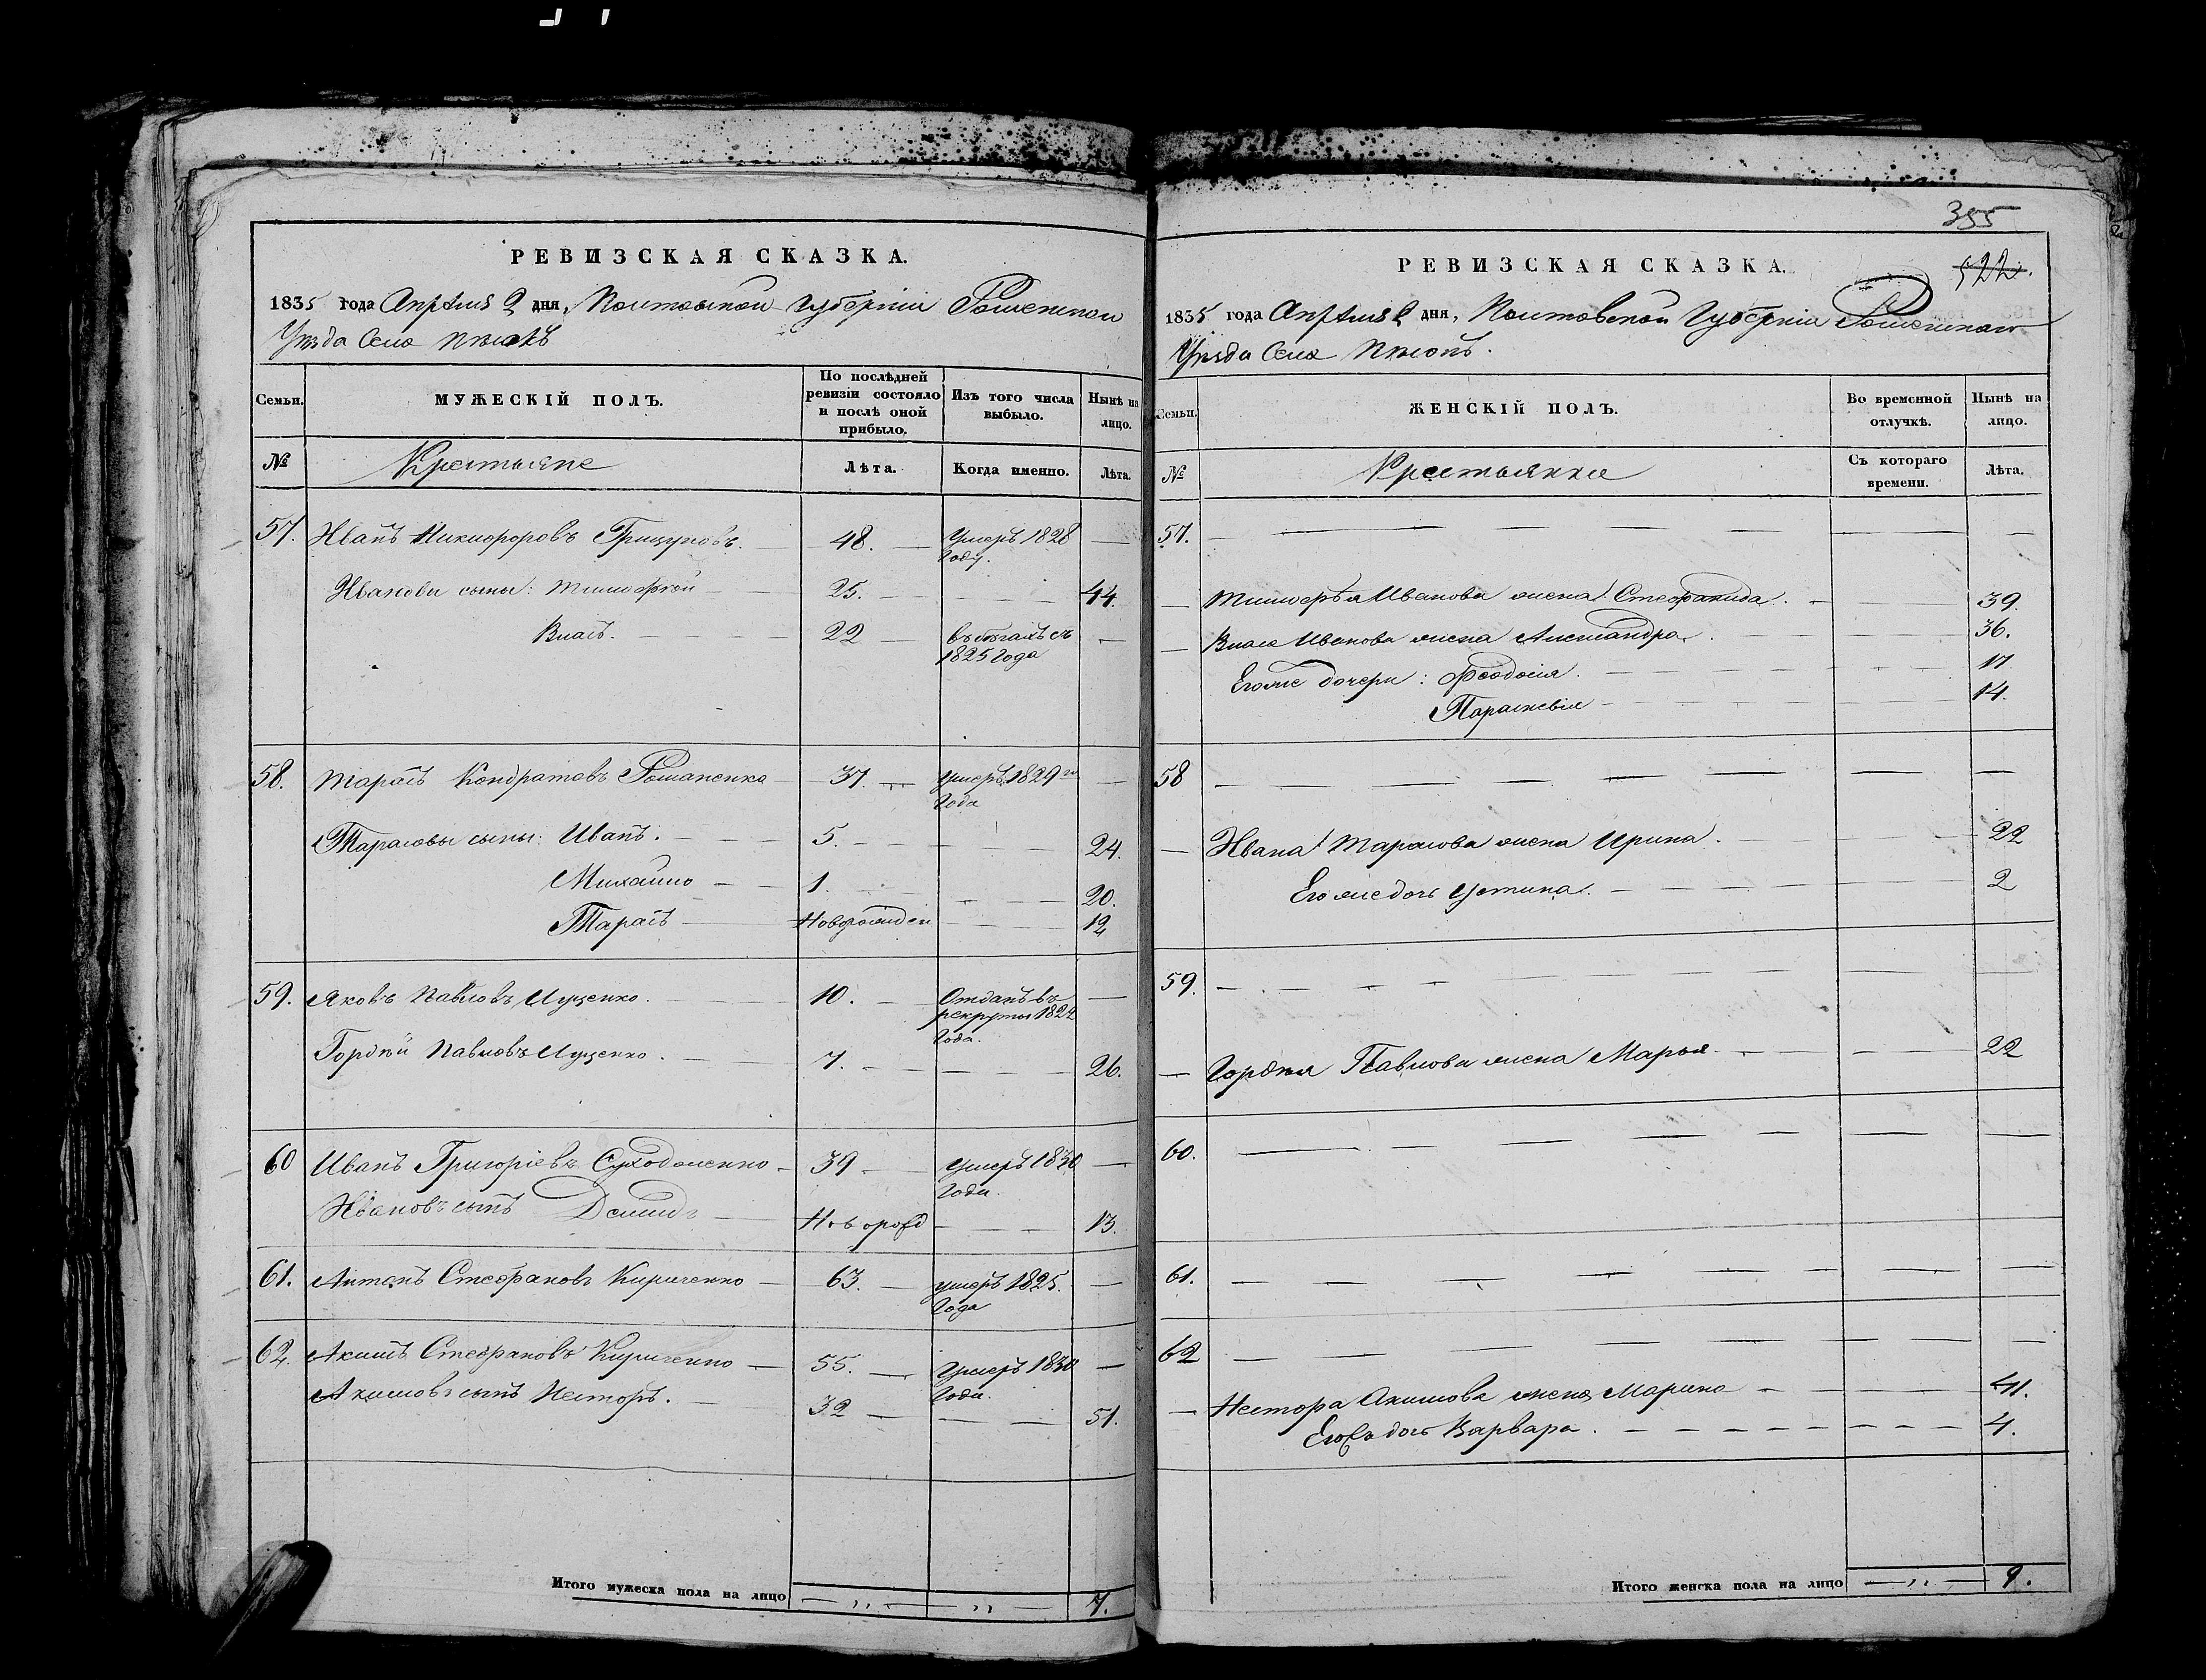 РЕВИЗСКАЯ СКАЗКА.
1835 года Апрѣля 2 дня, Полтавской Губерніи Роменскаго
Уѣзда Села Пѣсокъ
Семьи. МУЖЕСКІЙ ПОЛЪ. По послѣдней ревизіи состояло и послѣ оной прибыло. Изъ того числа выбыло. Нынѣ на лицо.
№ Крестьяне Лѣта. Когда именно. Лѣта.
57. Иванъ Никифоровъ 48. Умеръ 1828 Году. —
Ивановы сыны: Тимофѣй 25. — 44.
Власъ. 22 въ бѣгахъ съ 1825 Года —
58. Тарасъ Кондратовъ Романенко 37. умеръ 1829 го Года —
Тарасовы сыны: Иванъ. 5. — 24.
Михайло 1. — 20.
Тарасъ Новорожден — 12
59. Яковъ Павловъ Ищенко. 10. Отданъ въ рекруты 1824 Года. —
Гордѣй Павловъ Ищенко. 7. — 26.
60 Иванъ Григоріевъ Суходоленко 39 Умеръ 1830 Года. —
Ивановъ сынъ Демидъ Новорожд — 13.
61. Антонъ Стефановъ Кириченко 63. умеръ 1825. Года —
62. Акимъ Стефановъ Кириченко 55. Умеръ 1830 Года. —
Акимовъ сынъ Несторъ. 32 — 51.
Итого мужеска пола на лицо — „ — „ — 7.
355
522.
РЕВИЗСКАЯ СКАЗКА.
1835 года Апрѣля 2 дня, Полтавской Губерніи Роменскаго
Уѣзда Села Пѣсокъ.
Семьи. ЖЕНСКІЙ ПОЛЪ. Во временной отлучкѣ. Нынѣ на лицо.
№ Крестьянки Съ котораго времени. Лѣта.
57. —
— Тимофея Иванова жена Стефанида. 39.
— Власа Иванова жена Александра. 36.
Его же дочери: Феодосія. 17
Параскевія 14.
58 —
— Ивана Тарасова жена Ирина. 22
Его же дочь Устина. 2
59. —
— Гордѣя Павлова жена Марья. 22
60. —
61. —
62 —
— Нестора Акимова жена Марина 41.
дочь Варвара. 4.
Итого женска пола на лицо — „ — 9.